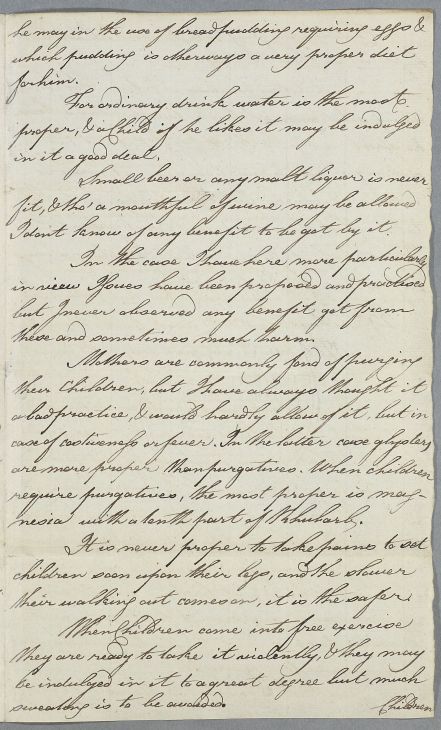 he may in the use of bread pudding requiring eggs &
which pudding is otherways a very proper diet
for him.
For ordinary drink water is the most
proper, & a Child if he likes it may be indulged
in it a good deal.
Small beer or any malt liquor is never
fit, & tho' a mouthful of wine may be allowed
I dont know of any benefit to be got by it.
In the case I have here more particularly
in view Issues have been proposed and practised
but I never observed any benefit got from
these and sometimes much harm.
Mothers are commonly fond of purging
their Children, but I have always thought it
a bad practice, & would hardly allow of it, but in
case of costiveness or fever. In the latter case glysters
are more proper than purgatives. When children
require purgatives, the most proper is mag-
nesia with a tenth part of Rhubarb.
It is never proper to take pains to set
children soon upon their legs, and the slower
their walking out comes on, it is the safer.
When Children come into free exercise
they are ready to take it violently, & they may
be indulged in it to a great degree but much
sweating is to be avoided.
Children